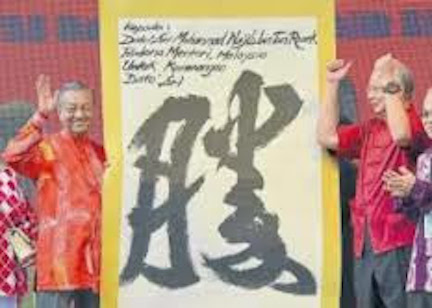 Kepada :
Dato' Sri Mohammad Najib bin Tun Razak
Perdana Menteri, Malaysia
Untuk Kemenangan
Dato' Sri
勝